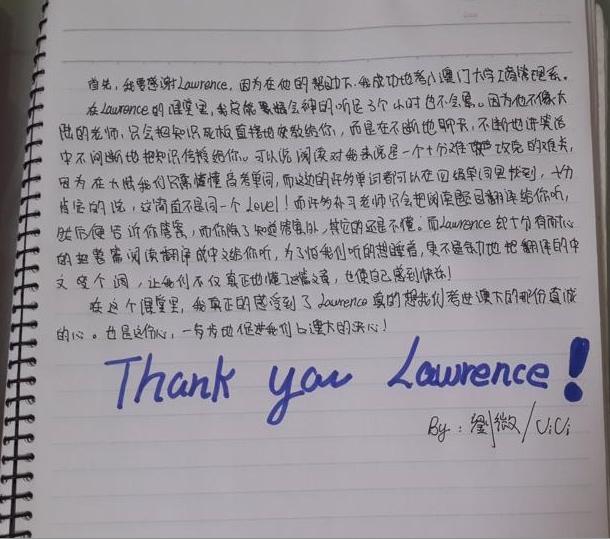 首先，我要感谢Lawrence，因为在他的帮助下，我成功地考入澳门大学工商管理系。
在Lawrence的课堂里，我总能聚精会神的听足3个小时也不会累。因为他不像大
陆的老师，只会把知识死板直接地灌教给你，而是在不断地聊天，不断地讲笑话
中不间断地把知识传授给你。可以说阅读对我来说是一个十分难攻克的难关，
因为在大陆我们只需懂高考单词，而这边的许多单词都可以在四级单词里找到，十分
肯定的说，这简直不是同一个Level！而许多补习老师只会把阅读题目翻译给你听，
然后便告诉你答案，而你除了知道答案以外，其它的还是不懂。而Lawrence却十分有耐心
的把整篇阅读翻译成中文给你听，为了怕我们听的想睡着，更不是
文
这个词，让我们不仅真正地懂了这篇文章，也使自己感到快乐！
在这个课堂里，我真正的感受到了Lawrence真的想我们考进澳大的那份真诚
的心。也是这份心，一步步地促进我们上澳大的决心！
Thank you Lawrence！
By：劉微/ViVi